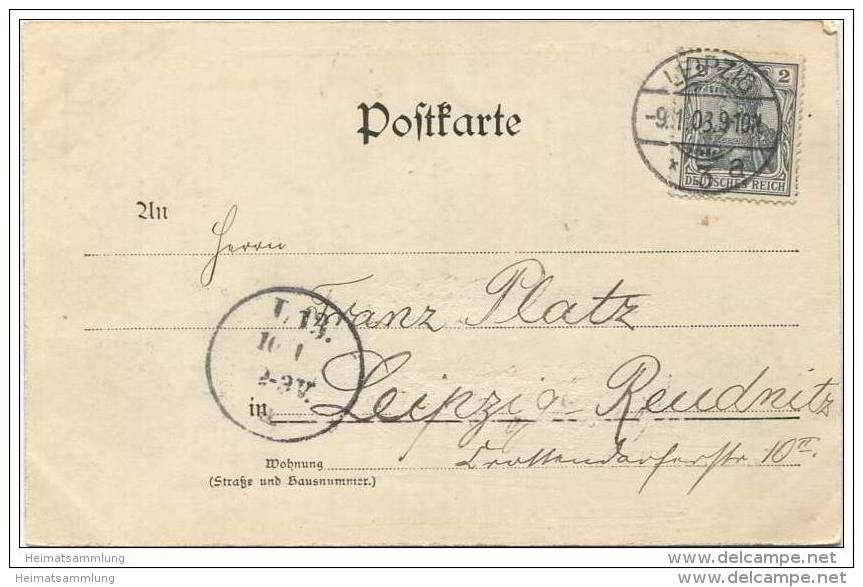 Postkarte
2 2
LEIPZIG
-9.1.03.9-10N.
* 3 a
DEUTSCHES REICH
An
Herrn
Franz Platz
L 13.
10 1
2-3V.
in Leipzig-Reudnitz
Wohnung Crottendorferstr. 10 II.
(Straße und Hausnummer.)
Heimatsammlung
Heimatsammlung
www.delcampe.net